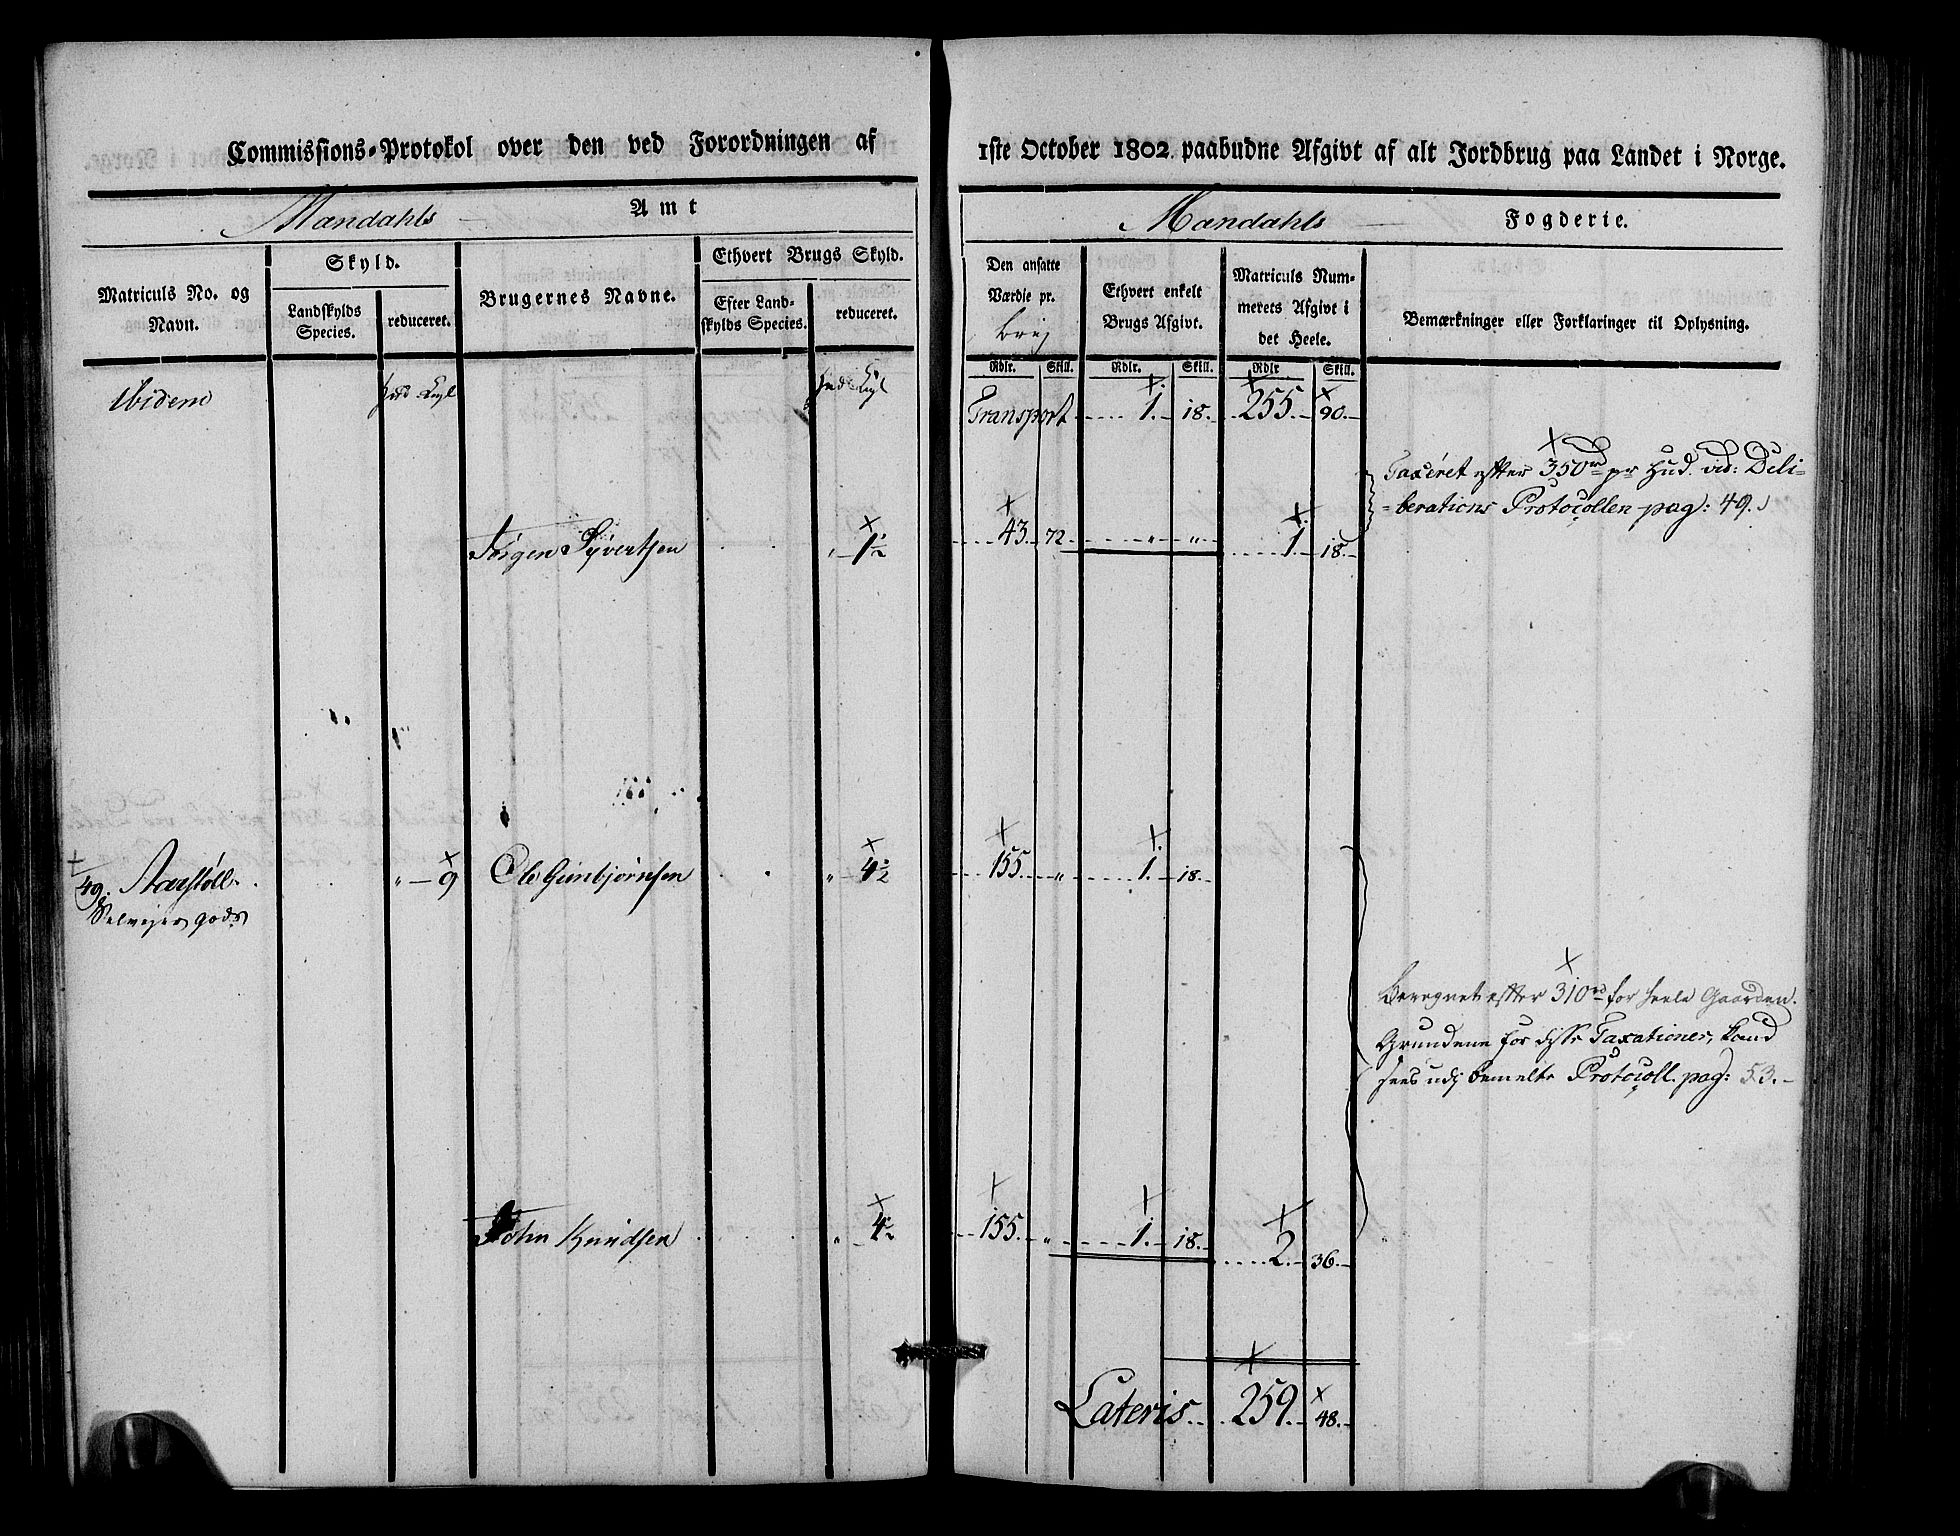 Commissions-Protokol over den ved Forordningen af 1ste October 1802 paabudne Afgivt af alt Jordbrug paa Landet i Norge.
Mandahls Amt
Mandahls Fogderie.
Matriculs No. og Navn.
Skyld.
Landskylds Species.
reduceret.
Brugernes Navne.
Ethvert Brugs Skyld.
Efter Landskylds Species.
reduceret.
Den ansatte Værdie pr. Brug
Ethvert enkelt Brugs Afgivt.
Matriculs Nummerets Afgivt i det Heele.
Bemærkninger eller Forklaringer til Oplysning.
Rdlr. Skill. Rdlr. Skill. Rdlr Skill.
Ibidem
Transport 1. 18. 255. 90.
Taxeret efter 350 rd pr Hud. vid: Deli=
=berations Protocollen pag: 49.
Jørgen Syvertsen " 1½ 43. 72 " " 1. 18.
49. Aarstöll. " 9 Ole Gunbjørnsen " 4½ 155. " 1. 18.
Selvejer gods
Beregnet efter 310 rd for heele Gaarden.
Grundene for disse Taxationer, kand
sees udj bemelte Protocoll. pag: 53.
John Knudsen " 4½ 155. " 1. 18. 2. 36.
Lateris 259. 48.